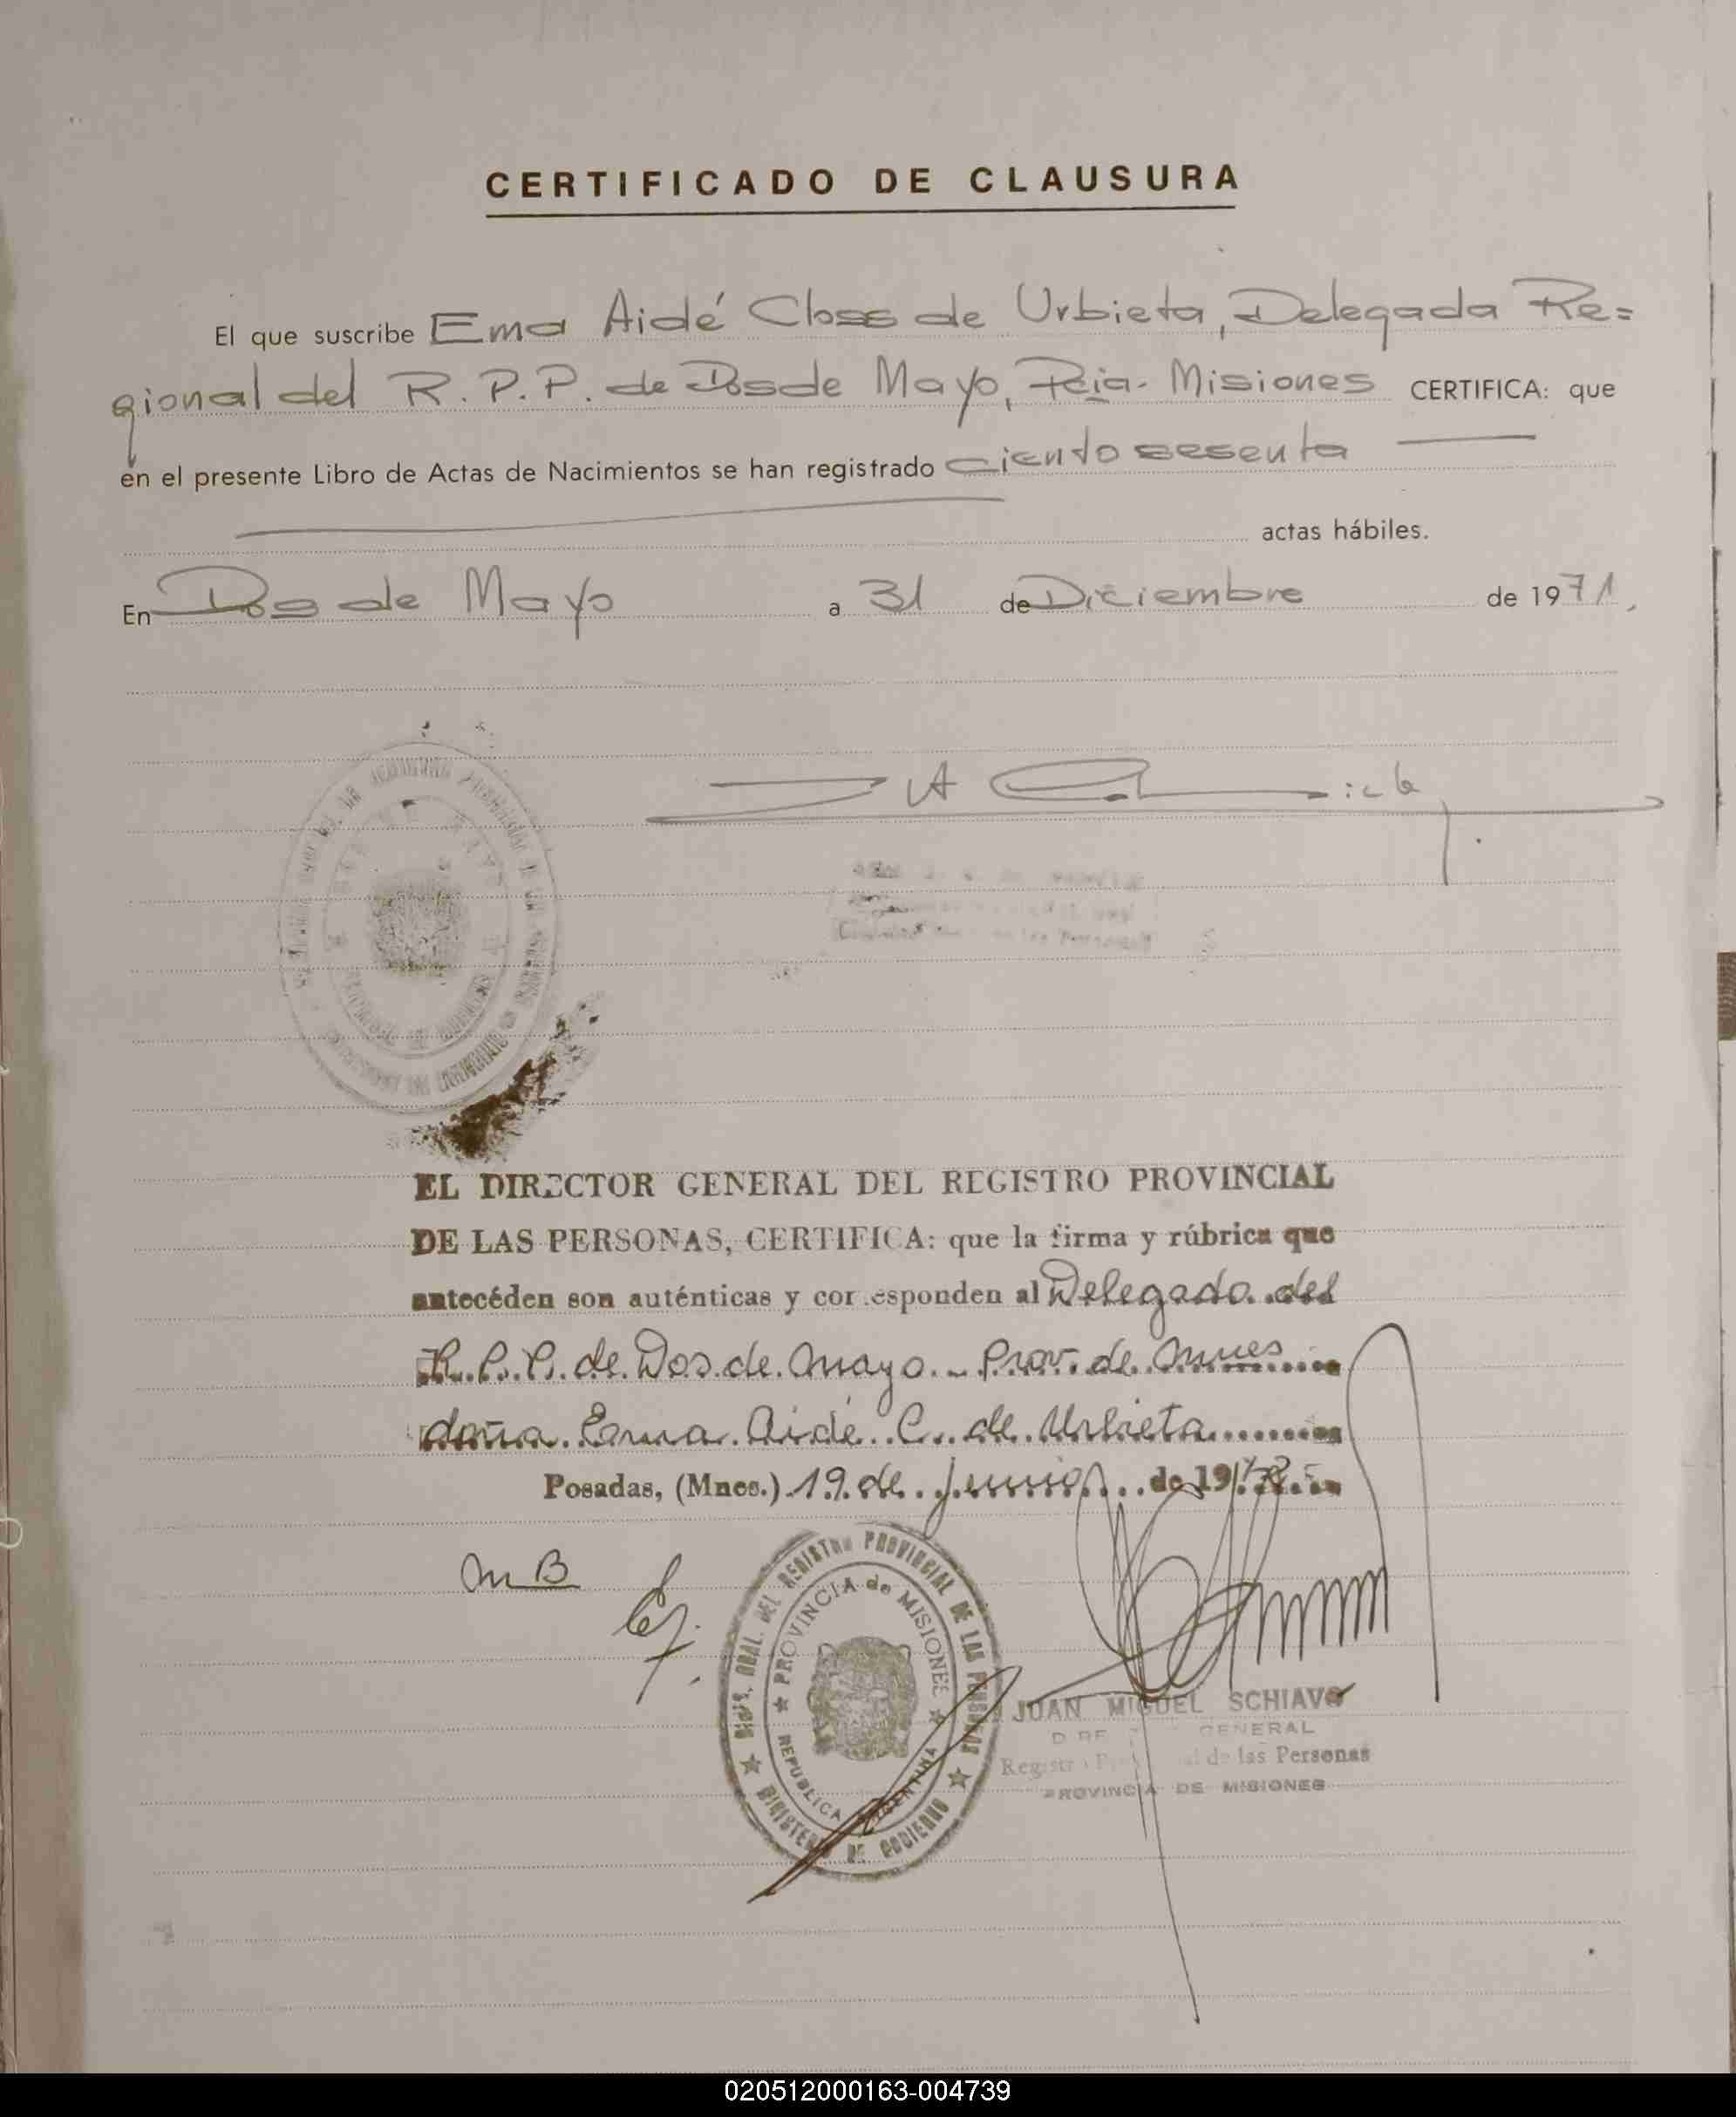 CERTIFICADO DE CLAUSURA
El que suscribe Ema Aidé Closs de Urbieta, Delegada Re=
gional del R.P.P. de Dos de Mayo, Pcia. Misiones CERTIFICA: que
en el presente Libro de Actas de Nacimientos se han registrado ciento sesenta
actas hábiles.
En Dos de Mayo a 31 de Diciembre de 1971.
EL DIRECTOR GENERAL DEL REGISTRO PROVINCIAL
DE LAS PERSONAS, CERTIFICA: que la firma y rúbrica que
antecéden son auténticas y corresponden al Delegado del
R.P.P. de Dos de Mayo - Prov. de Mnes
doña Ema Aidé C. de Urbieta
Posadas, (Mnes.) 19 de Junio de 19
MB
DIREC. GRAL. DEL REGISTRO PROVINCIAL DE LAS PERSONAS
PROVINCIA de MISIONES
REPUBLICA ARGENTINA
MINISTERIO DE GOBIERNO
JUAN MIGUEL SCHIAVO
GENERAL
de las Personas
PROVINCIA DE MISIONES
020512000163-004739